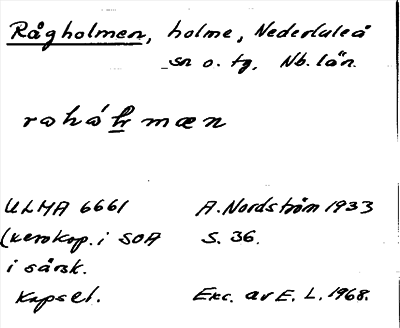 Rågholmen, holme, Nederluleå
sn o. tg, Nb. län.
raháḻmæn
ULMA 6661 A. Nordström 1933
(xerokop. i SOA S. 36.
i särsk.
kapsel. Exc. av E. L. 1968.